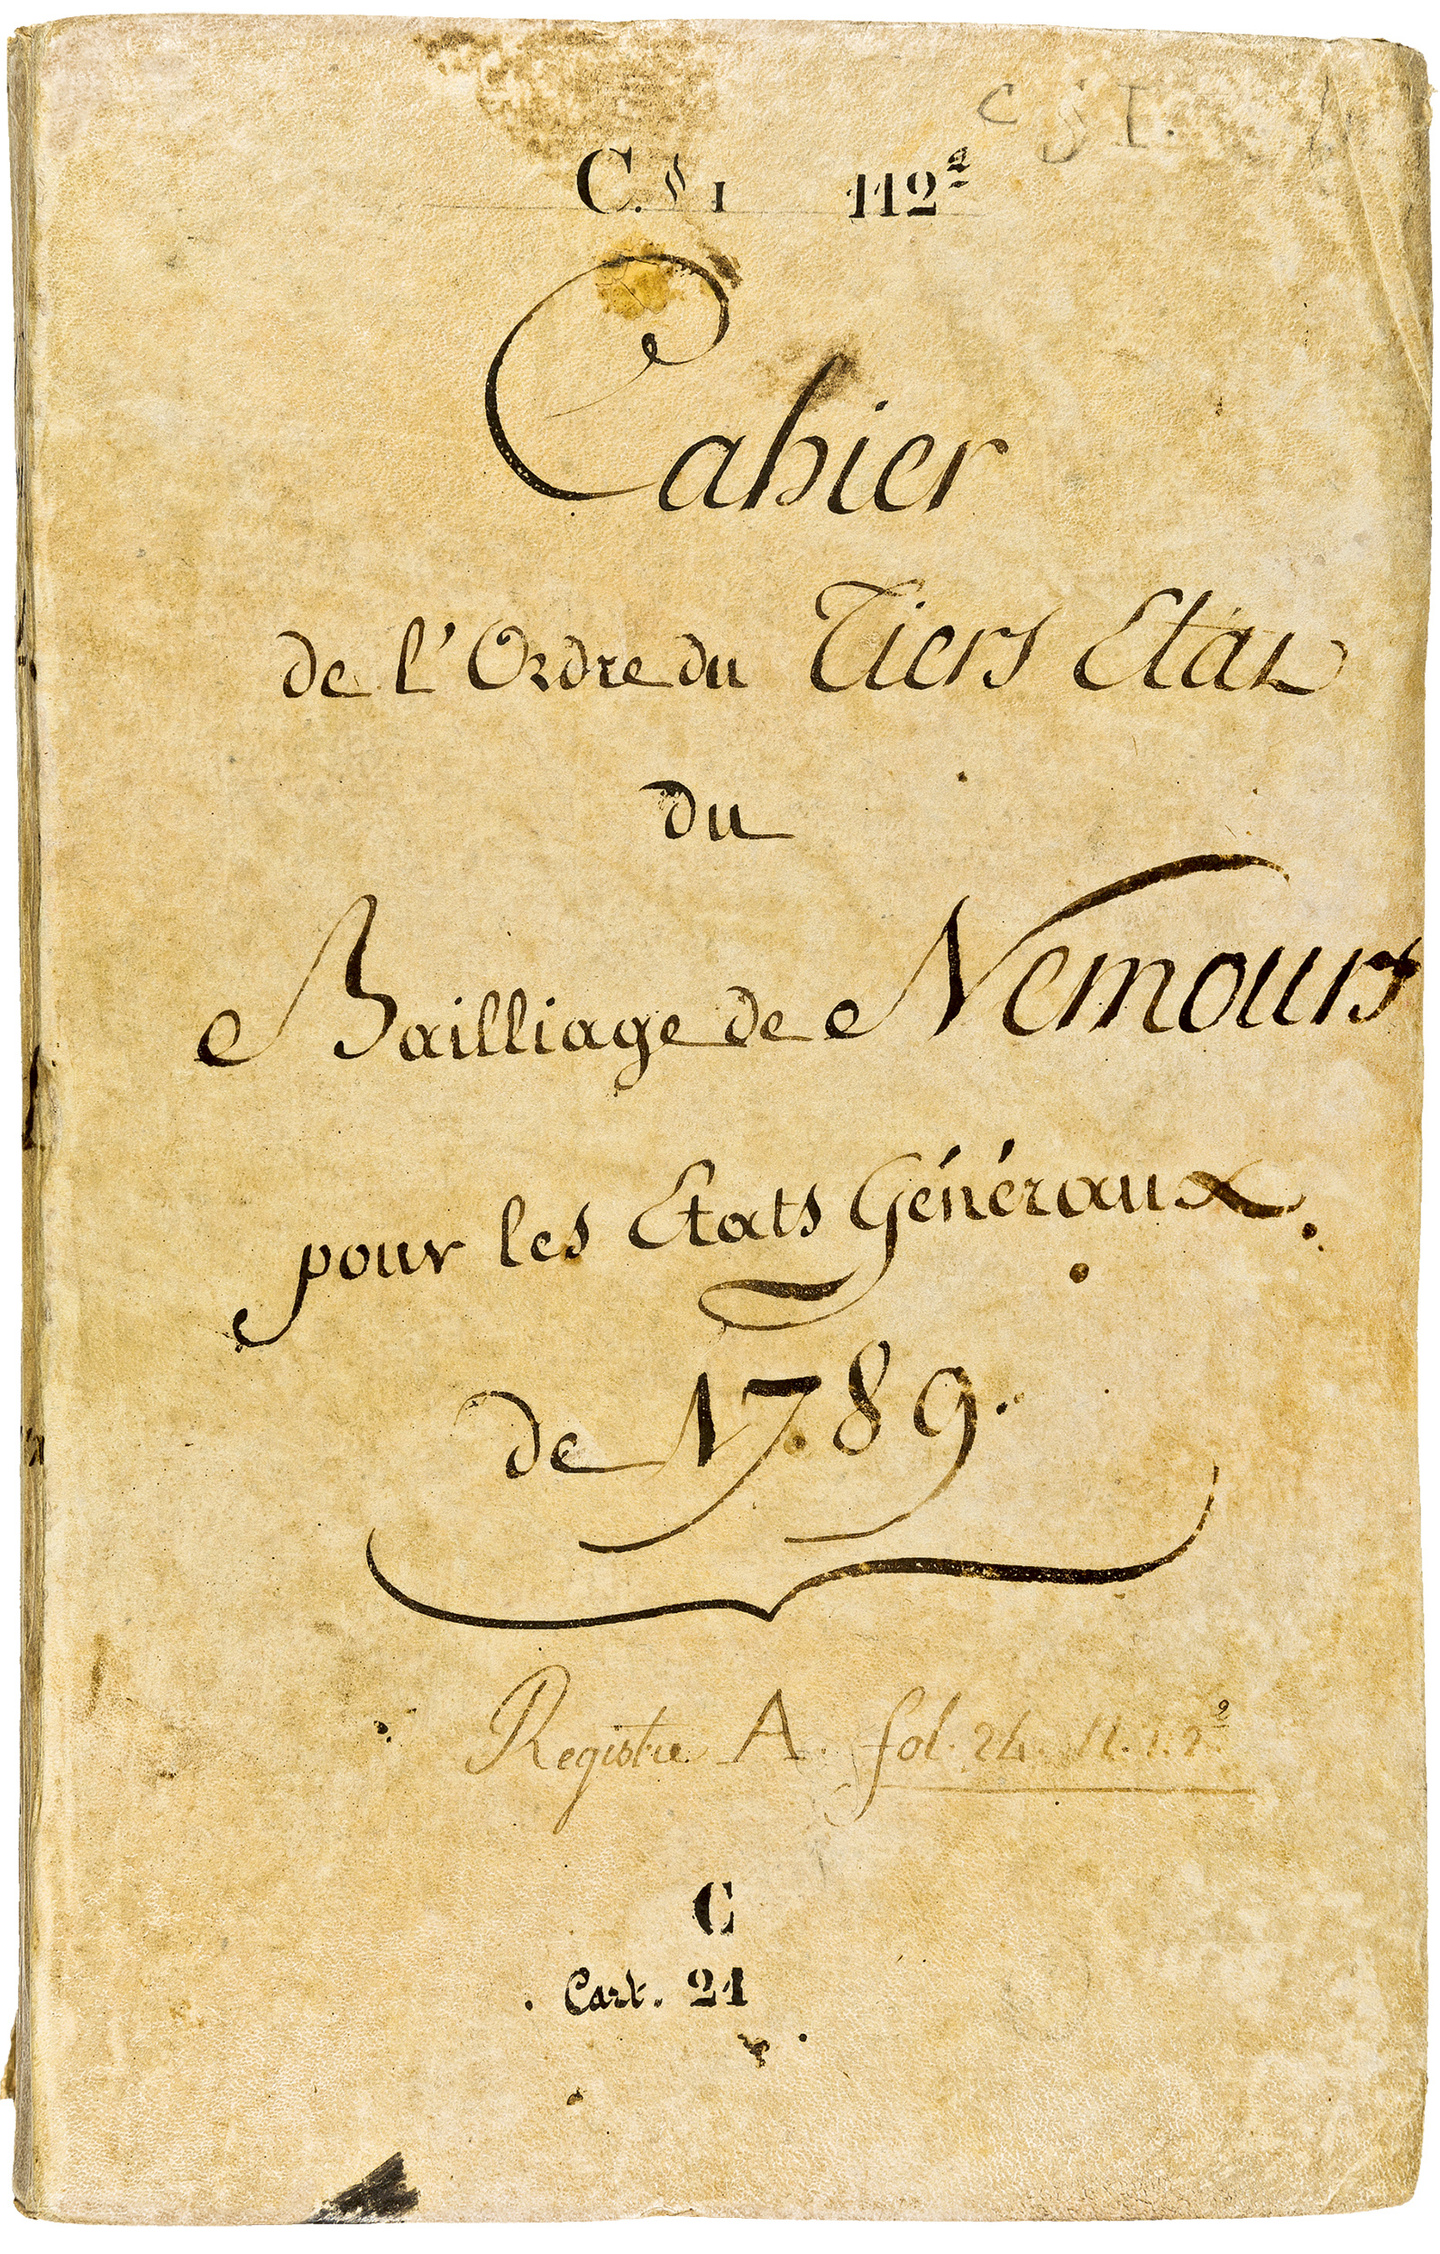 C § I.
C. § 1 112ª
Cahier
de l'Ordre du Tiers Etat
du
Bailliage de Nemours
pour les Etats Généraux.
de 1789.
Registre A. fol. 24.
C
Cart. 21